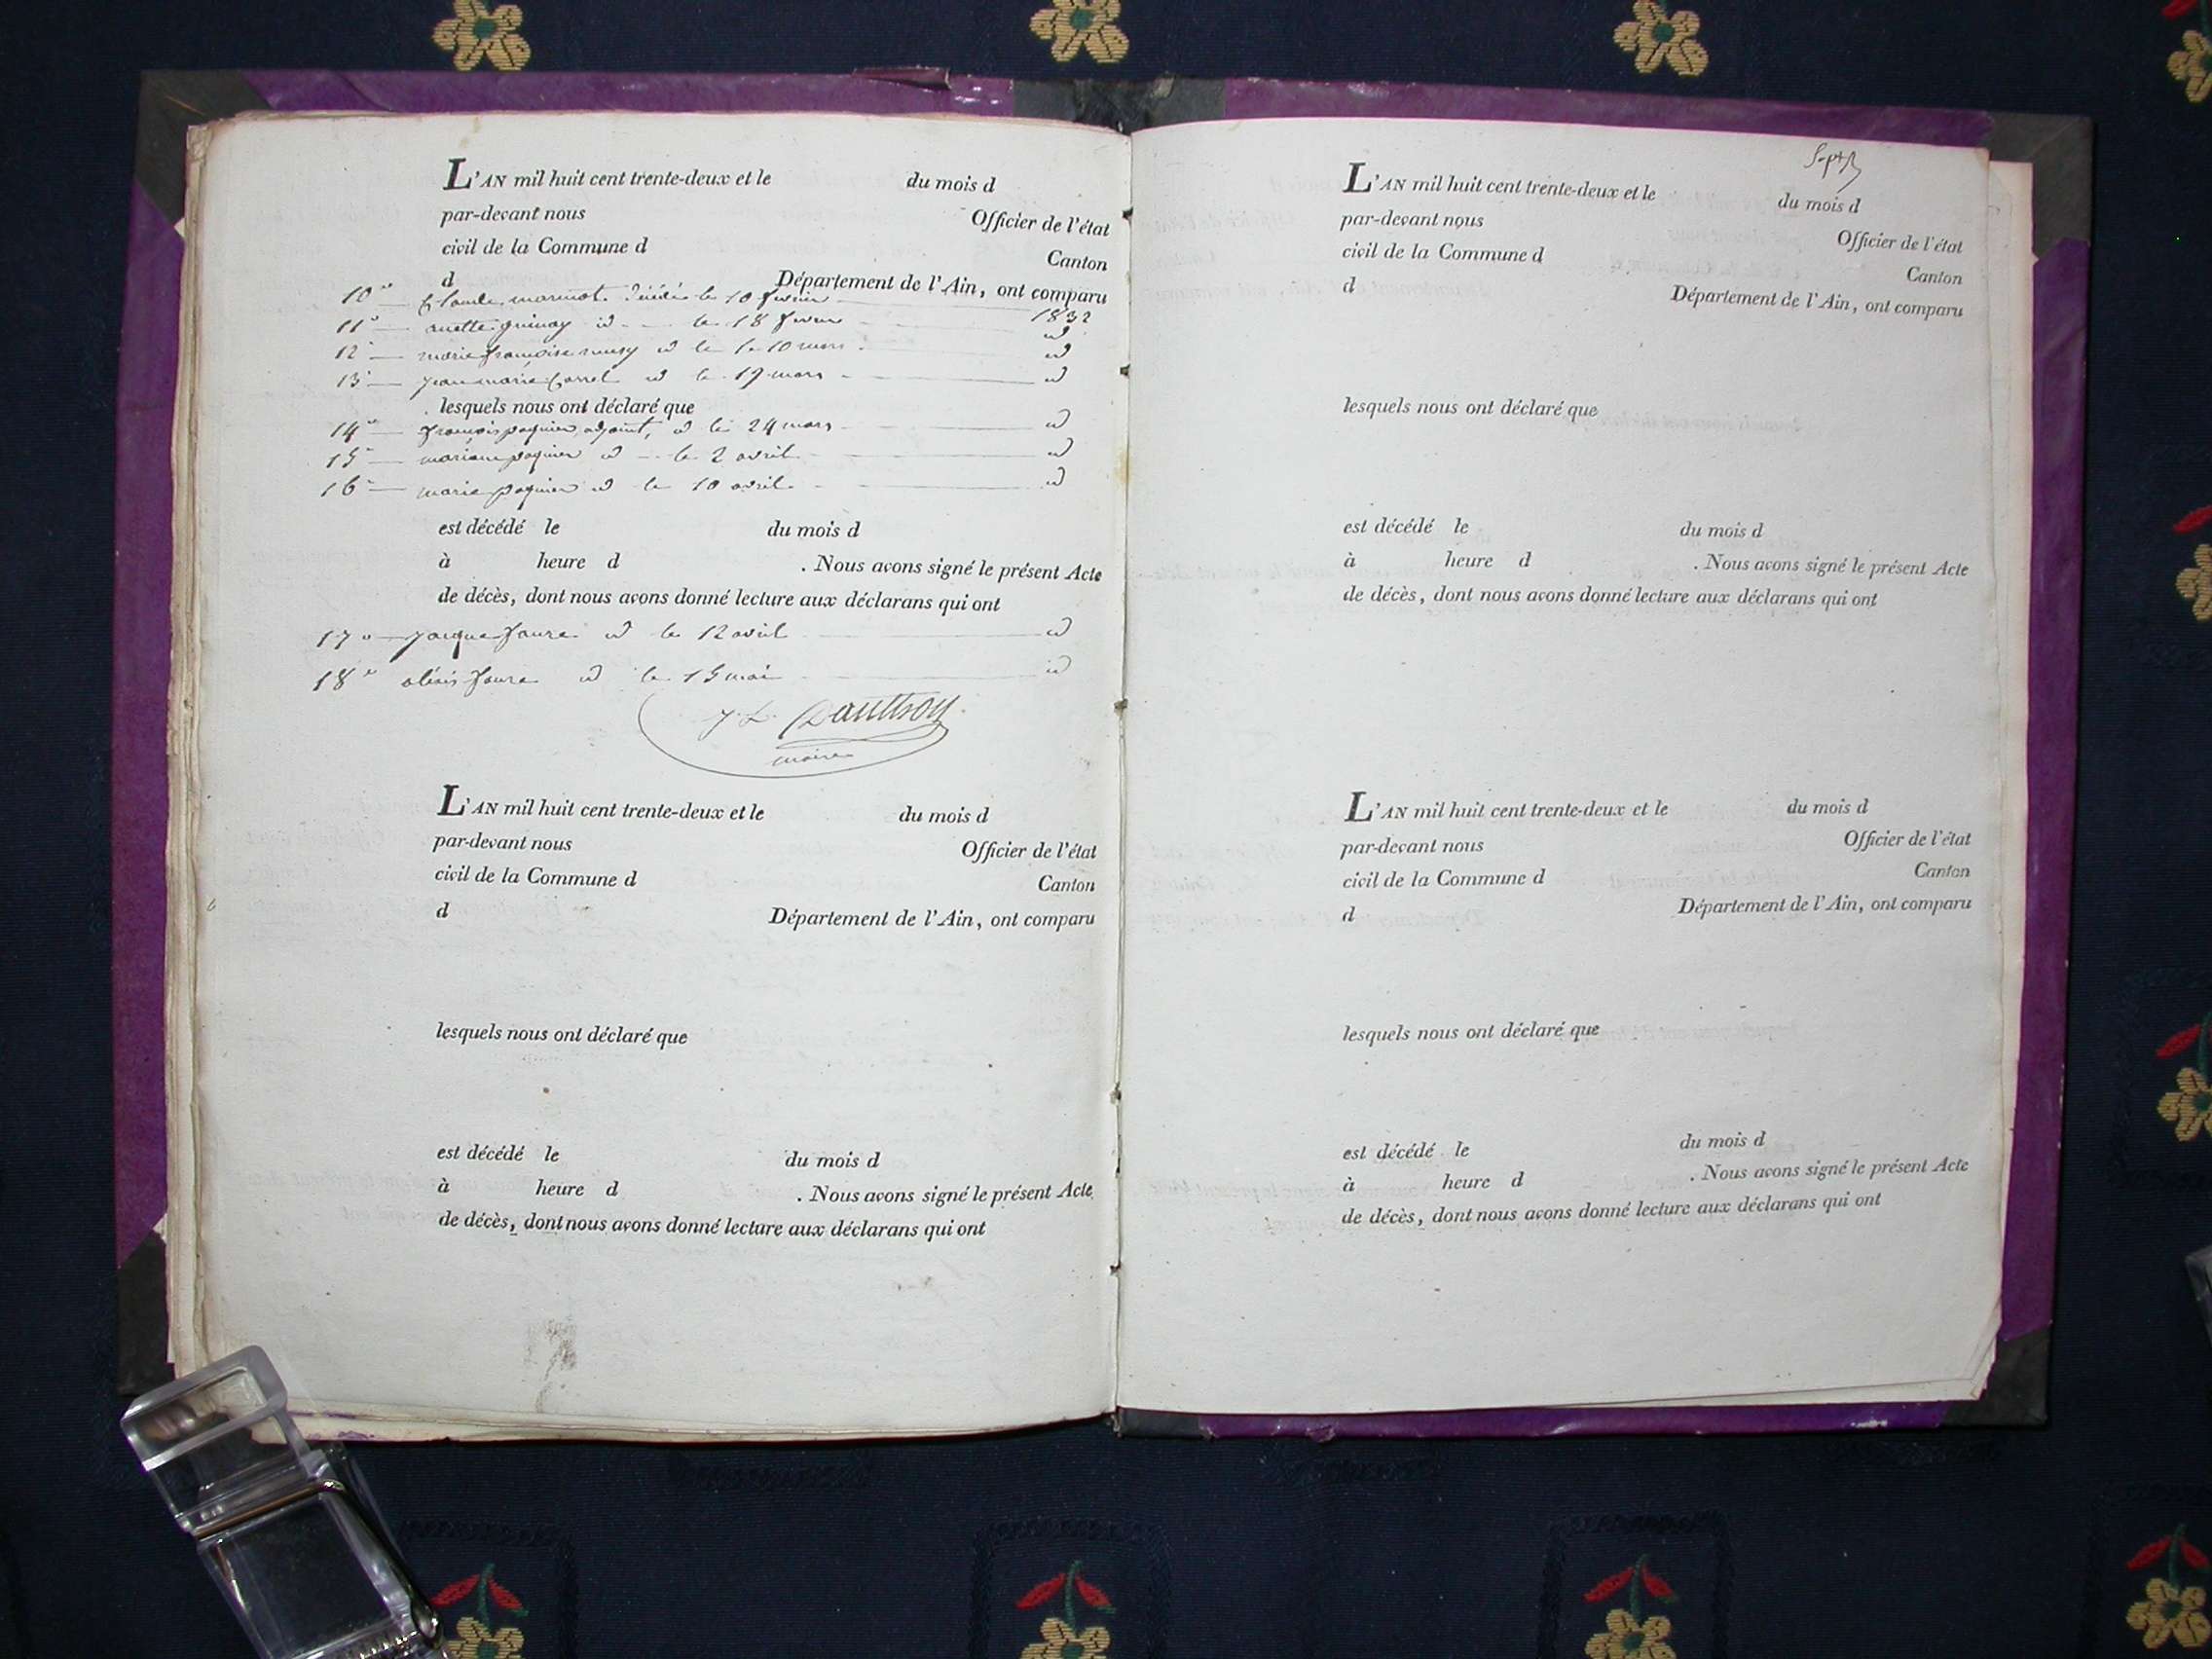 L'AN mil huit cent trente-deux et le du mois d
par-devant nous Officier de l'état
civil de la Commune d Canton
d Département de l'Ain, ont comparu
10° Claude marmot décédé le 10 fevrier 1832
11° anette id le 18 fevrier id
12° marie françoise id le 10 mars id
13° jean marie id le 17 mars id
lesquels nous ont déclaré que
14° françois paquier adjoint, id le 24 mars id
15° mariane paquier id le 2 avril id
16° marie paquier id le 10 avril id
est décédé le du mois d
à heure d . Nous avons signé le présent Acte
de décès, dont nous avons donné lecture aux déclarans qui ont
17° jacque faure id le 12 avril id
18° aléxis faure id le 15 mai id
J. L.
maire
L'AN mil huit cent trente-deux et le du mois d
par-devant nous Officier de l'état
civil de la Commune d Canton
d Département de l'Ain, ont comparu
lesquels nous ont déclaré que
est décédé le du mois d
à heure d . Nous avons signé le présent Acte
de décès, dont nous avons donné lecture aux déclarans qui ont
L'AN mil huit cent trente-deux et le du mois d
par-devant nous Officier de l'état
civil de la Commune d Canton
d Département de l'Ain, ont comparu
lesquels nous ont déclaré que
est décédé le du mois d
à heure d . Nous avons signé le présent Acte
de décès, dont nous avons donné lecture aux déclarans qui ont
L'AN mil huit cent trente-deux et le du mois d
par-devant nous Officier de l'état
civil de la Commune d Canton
d Département de l'Ain, ont comparu
lesquels nous ont déclaré que
est décédé le du mois d
à heure d . Nous avons signé le présent Acte
de décès, dont nous avons donné lecture aux déclarans qui ont